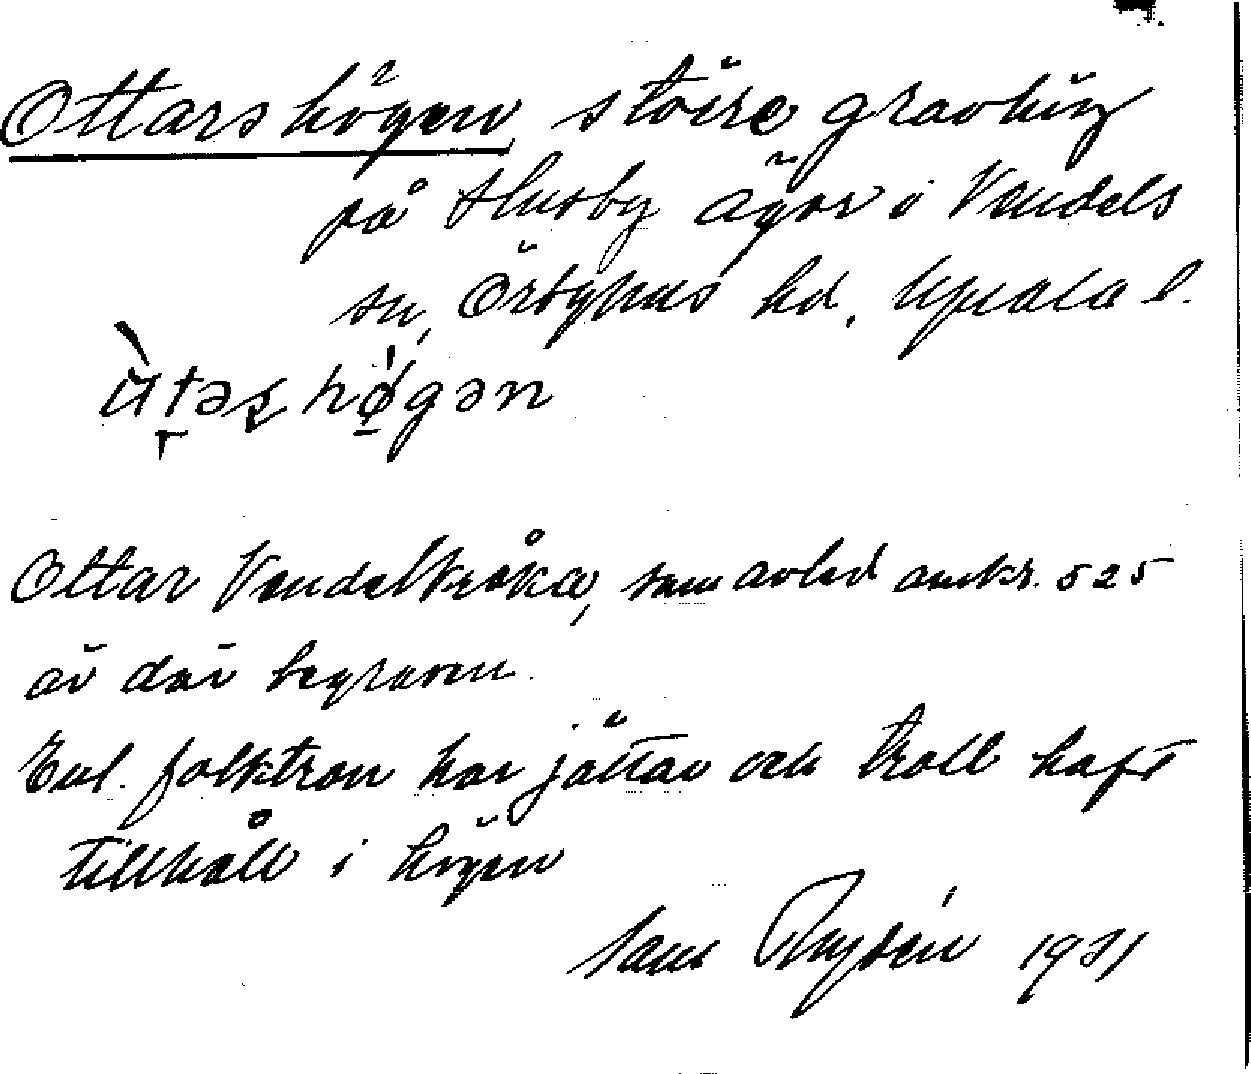 Ottarshögen, större gravhög
på Husby ägor i Vendels
sn, Örbyhus hd, Upsala l.
högən
Ottar Vendelkråka, som avled omkr. 525
är där begraven.
Enl. folktron har jättar och troll haft
tillhåll i högen
Sam Rydén 1931